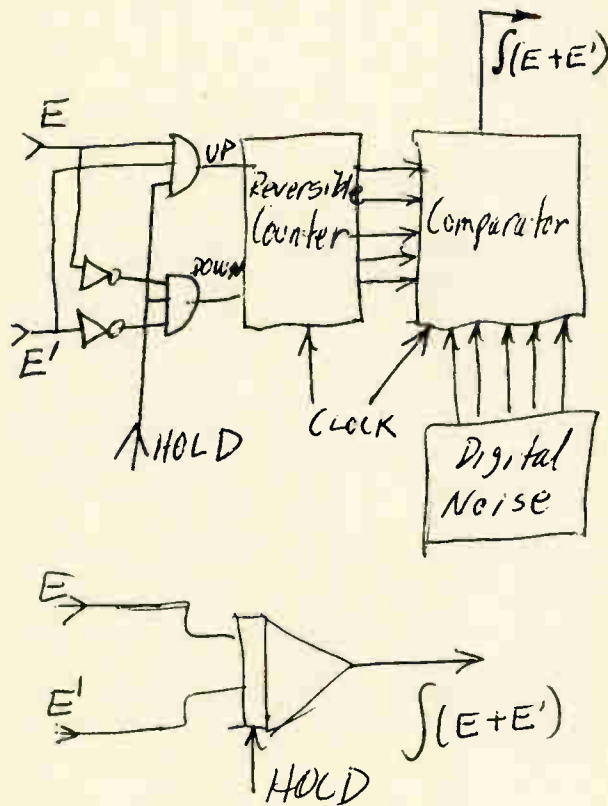 ∫(E+E')
E
UP
Reversible
Counter
Comparator
DOWN
E'
HOLD
CLOCK
Digital
Noise
E
E'
∫(E+E')
HOLD